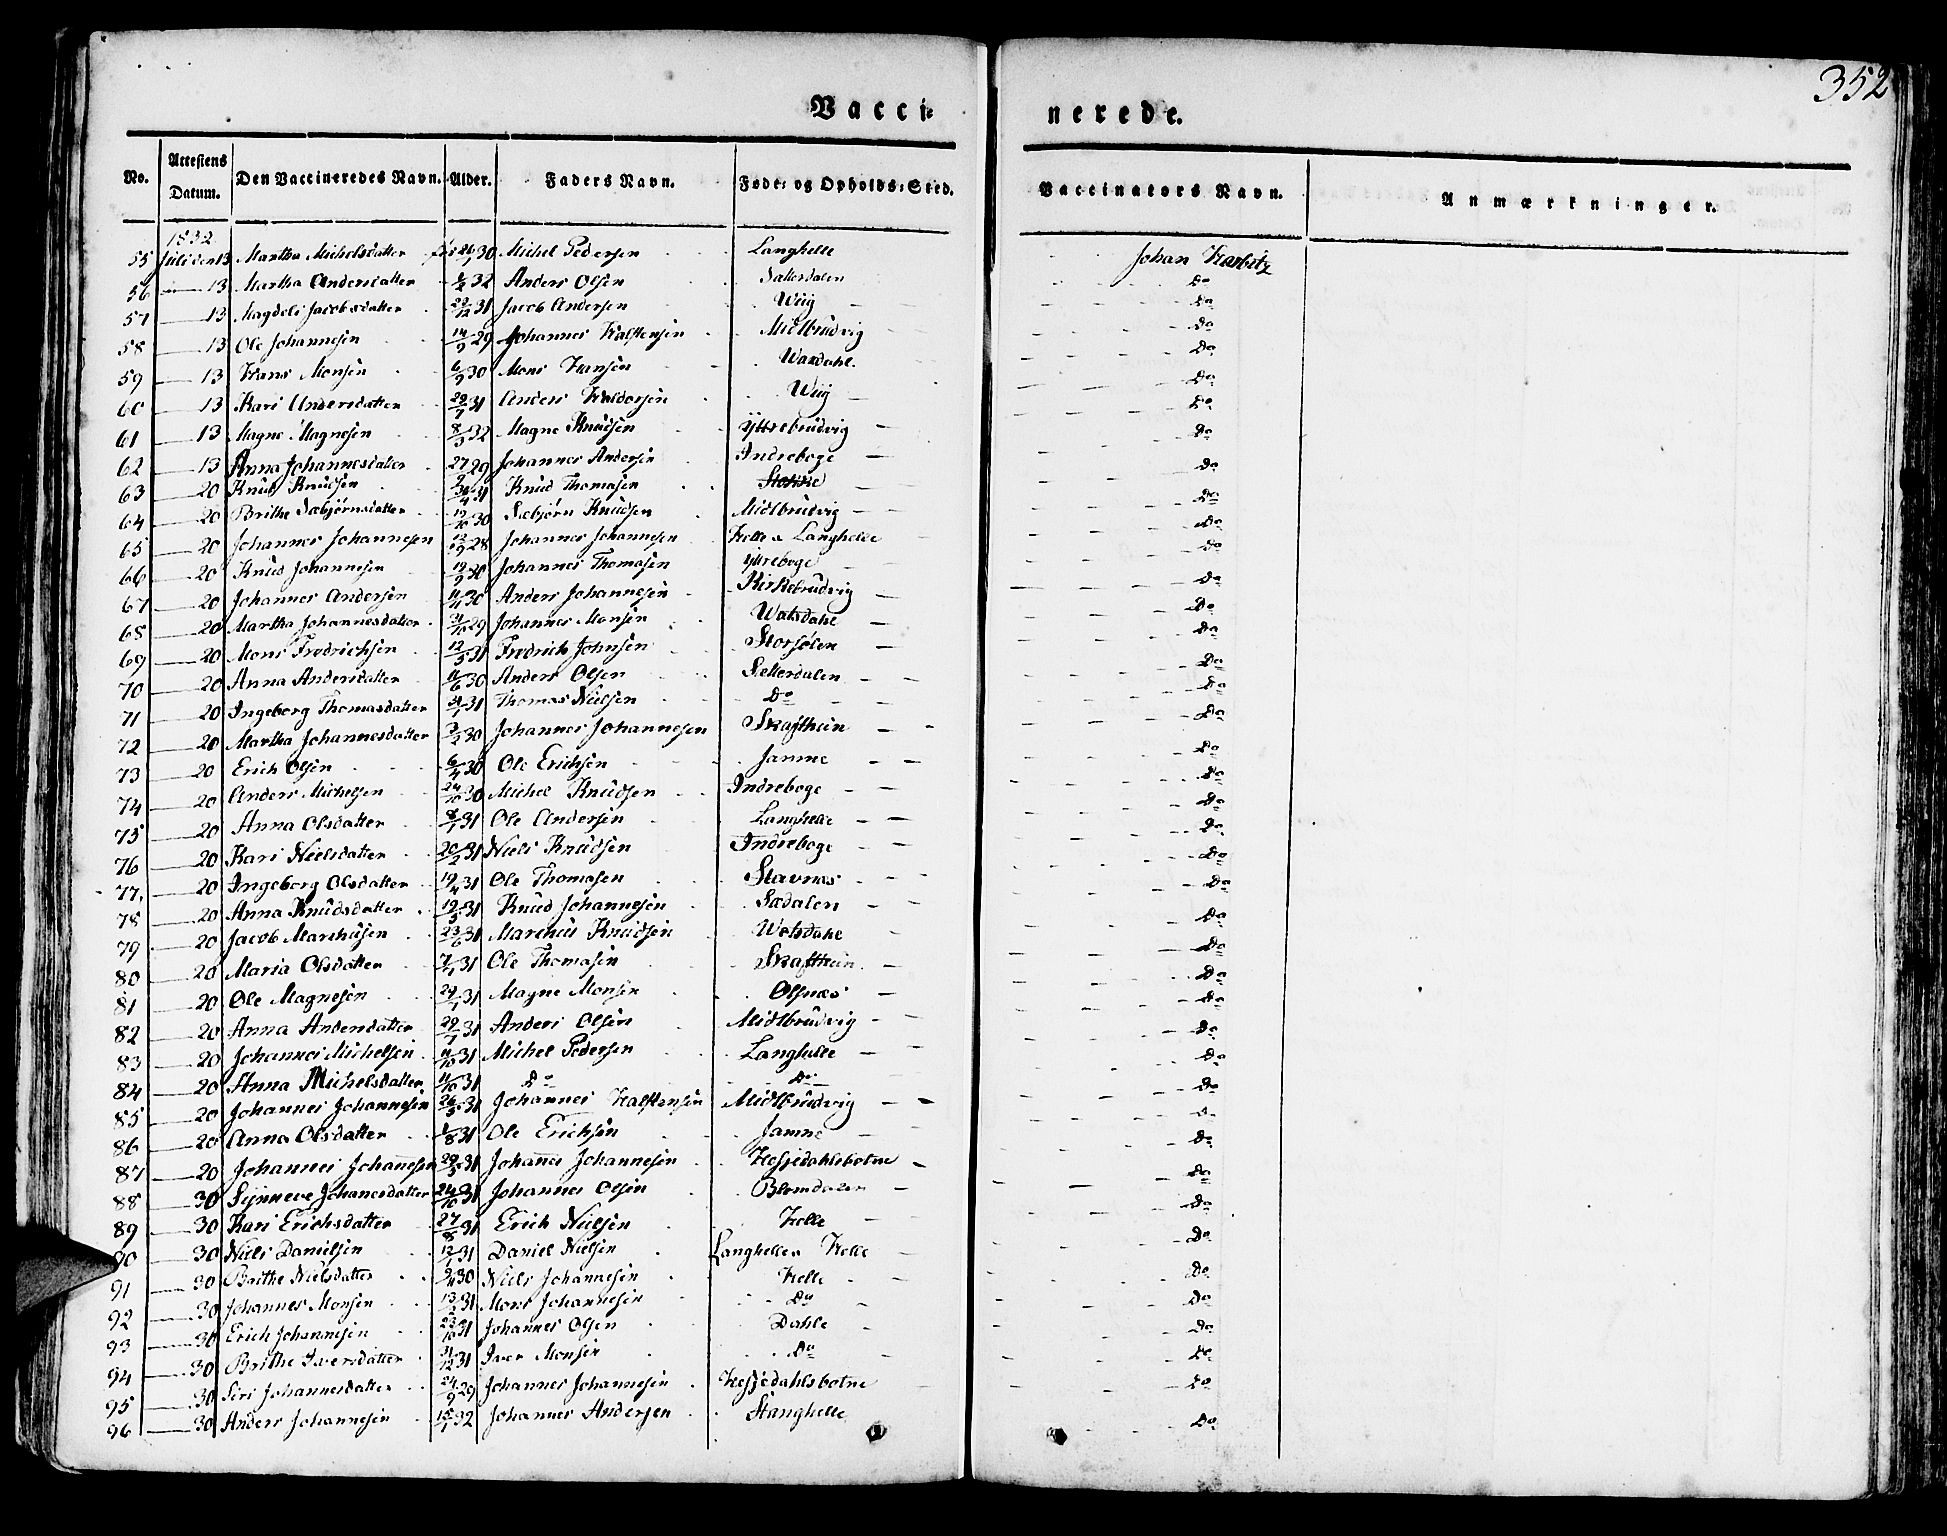 352
Vacci- nerede.
No. Attestens Datum. Den Vaccineredes Navn. Alder. Faders Navn. Føde- og Opholds-Sted. Vaccinators Navn. Anmærkninger.
1832
55 Juli den 13 Martha Michelsdatter 30 Michel Pedersen Langhelle Johan Harbitz
56 — 13 Martha Andersdatter 32 Anders Olsen Sætterdalen Do
57 — 13 Magdeli Jacobsdatter 22/12 31 Jacob Andersen Wiig Do
58 — 13 Ole Johannesen 14/9 29 Johannes Halstensen Midtbrudvig Do
59 — 13 Hans Monsen 6/9 30 Mons Hansen Do
60 — 13 Kari Andersdatter 31 Anders Haldorsen Wiig Do
61 — 13 Magne Magnesen 8/3 32 Magne Knudsen Yttrebrudvig Do
62 — 13 Anna Johannesdatter 29 Johannes Andersen Indreboge Do
63 — 20 Knud Knudsen 31 Knud Thomasen Do
64 — 20 Brithe Sæbjørnsdatter 30 Sæbjørn Knudsen Midtbrudvig Do
65 — 20 Johannes Johannesen 28 Johannes Johannesen Helle a Langhelle Do
66 — 20 Knud Johannesen 30 Johannes Thomasen Yttreboge Do
67 — 20 Johannes Andersen 30 Anders Johannesen Kirkebrudvig Do
68 — 20 Martha Johannesdatter 29 Johannes Monsen Watsdahl Do
69 — 20 Mons Fredrichsen 12/5 31 Fredrich Johnsen Storsølen Do
70 — 20 Anna Andersdatter 11/6 30 Anders Olsen Sætterdalen Do
71 — 20 Ingeborg Thomasdatter 31 Thomas Nielsen Do Do
72 — 20 Martha Johannesdatter 3/2 30 Johannes Johannesen Skafthein Do
73 — 20 Erich Olsen 6/4 30 Ole Erichsen Jamne Do
74 — 20 Anders Michelsen 24/10 30 Michel Knudsen Indreboge Do
75 — 20 Anna Olsdatter 8/1 31 Ole Andersen Langhelle Do
76 — 20 Kari Nielsdatter 20/2 31 Niels Knudsen Indreboge Do
77. — 20 Ingeborg Olsdatter 19/4 31 Ole Thomasen Stavnæs Do
78 — 20 Anna Knudsdatter 19/5 31 Knud Johannesen Sædalen Do
79 — 20 Jacob Marchusen 23/6 31 Marchus Knudsen Watsdahl Do
80 — 20 Maria Olsdatter 31 Ole Thomasen Skafthein Do
81 — 20 Ole Magnesen 31 Magne Monsen Olsnæs Do
82 — 20 Anna Andersdatter 29/7 31 Anders Olsen Midtbrudvig Do
83 — 20 Johannes Michelsen 11/10 31 Michel Pedersen Langhelle Do
84 — 20 Anna Michelsdatter 11/10 31 Do Do Do
85 — 20 Johannes Johannesen 26/5 31 Johannes Halstensen Midtbrudvig Do
86 — 20 Anna Olsdatter 31 Ole Erichsen Jamne Do
87 — 20 Johannes Johanesen 31 Johanes Johannesen Hesjedahlsbotne Do
88 — 30 Synneve Johanesdatter 24/10 31 Johannes Olsen Blomdalen Do
89 — 30 Kari Erichsdatter 27/8 31 Erich Nielsen Helle Do
90 — 30 Niels Danielsen 12/1 31 Daniel Nielsen Langhelle Helle Do
91 — 30 Brithe Nielsdatter 30 Niels Johannesen Helle Do
92 — 30 Johannes Monsen 31 Mons Johannesen Do Do
93 — 30 Erich Johannesen 31 Johannes Olsen Dahle Do
94 — 30 Brithe Iversdatter 31 Iver Monsen Do Do
95 — 30 Siri Johannesdatter 24/9 29 Johannes Johannesen Hesjedahlsbotne Do
96 — 30 Anders Johannesen 32 Johannes Andersen Stanghelle Do